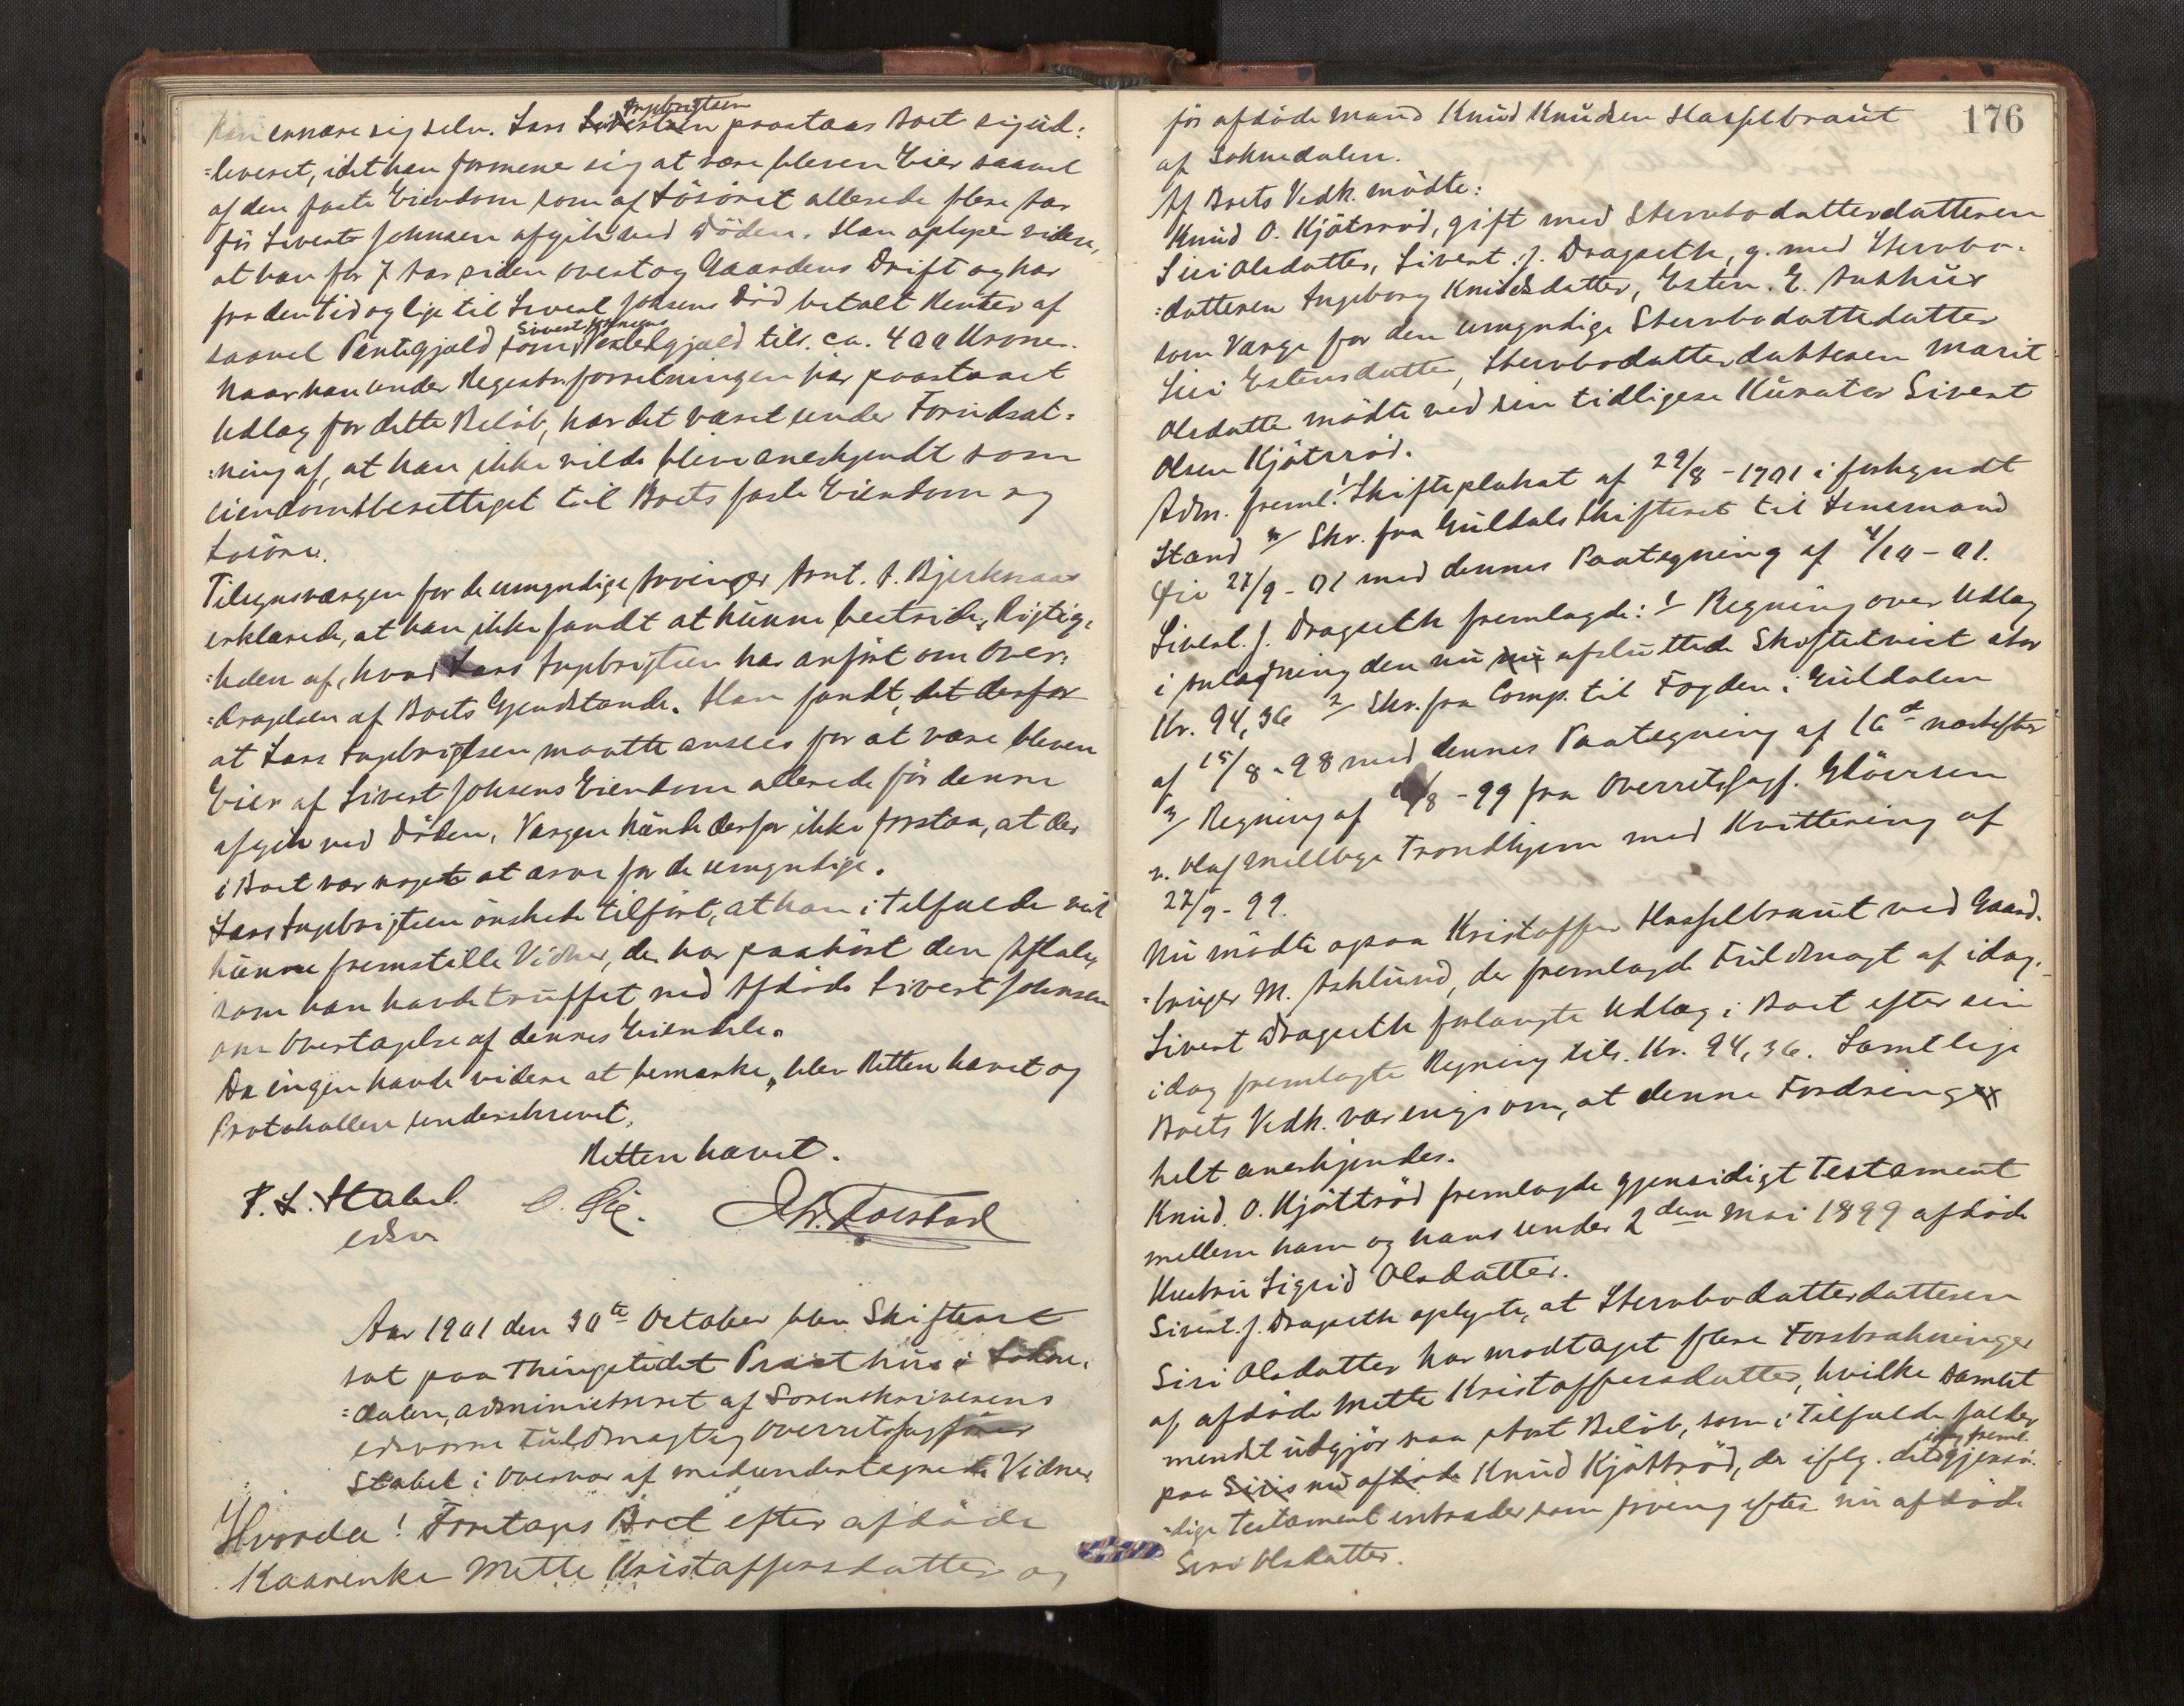 kan ernære sig selv. Lars Sivertsen Ingebrigtsen paastaar Boet sig ud:
=leveret, idet han formener sig at være bleven Eier saavel
af den faste Eiendom som af Løsøret allerede flere Aar
før Sivert Johnsen afgik ved Døden. Han oplyser videre,
at han for 7 Aar siden overtog Gaardens Drift og har
fra den Tid og lige til Sivert Johsens Død betalt Renter af
saavel Pantegjæld som Sivert Johnsens Vexelgjæld tils. ca. 400 Kroner.
Naar han under Registr.forretningen har paastaaet
Udlæg for dette Beløb, har det været under Forudsæt=
=ning af, at han ikke vilde blive anerkjendt som
eiendomsberettiget til Boets faste Eiendom og
Løsøre.
Tilsynsværgen for de umyndige Arvinger Arnt. A. Bjerknæs
erklærede, at han ikke fandt at kunne bestride, Rigtig:
=heden af, hvad Lars Ingebrigtsen har anført om Over:
=dragelsen af Boets Gjenstande. Han fandt, det derfor
at Lars Ingebrigtsen maatte ansees for at være bleven
Eier af Sivert Johsens Eiendom allerede før denne
afgik ved Døden, Værgen kunde derfor ikke forstaa, at der
i Boet var noget at arve for de umyndige.
Lars Ingebrigtsen ønskede tilført, at han i Tilfælde vil
kunne fremstille Vidner, der har paahørt den Aftale,
som han havde truffet med Afdøde Sivert Johnsen
om Overtagelse af dennes Eiendele.
Da ingen havde videre at bemærke, blev Retten hævet og
Protokollen underskrevet.
Retten hævet.
P. L. Stabel.
edsv.
Aar 1901 den 30te October blev Skifteret
sat paa Thingstedet Præsthus i Sokne:
=dalen, administreret af Sorenskriverens
edsvorne Fuldmægtig Overretssagfører
Stabel i Overvær af medundertegnede Vidner
Hvorda! Foretages Boet efter afdøde
Kaarenke Mette Kristoffersdatter og
176
før afdøde Mand Knud Knudsen Hasselbraut
af Soknedalen.
Af Boets Vedk. mødte:
Knud O. Kjøtsrød, gift med Stervbodatterdatteren
Siri Olsdatter, Sivert J. Dragseth, g. med Stervbo=
=datteren Ingeborg Knudsdatter, Esten. E. Aushus
som Værge for den umyndige Stervbodatterdatter
Siri Estensdatter, Stervbodatterdatteren Marit
Olsdatter mødte ved sin tidligere Kurator Sivert
Olsen Kjøtsrød.
Adm. freml. 1/ Skifteplakat af 29/8 - 1901 i forkyndt
Stand 2/ Skr. fra Guldals Skifteret til Lensmand
Øie 27/9 - 01 med dennes Paategning af 4/10 - 01.
Sivert. J. Dragseth fremlagde: 1/ Regning over Udlæg
i Anledning den nu nu afsluttede Skiftetvist stor
Kr. 94,36 2/ Skr. fra Comp. til Fogden i Guldalen
af 15/8 - 98 med dennes Paategning af 16d næstefter
3/ Regning af /8 - 99 fra Overretssagf. Gløersen
v. Olaf Trondhjem med Kvittering af
27/9 - 99.
Nu mødte ogsaa Kristoffer Hasselbraut ved Gaard.
=bruger M. Ashlund, der fremlagde Fuldmagt af idag.
Sivert Dragseth forlangte Udlæg i Boet efter sin
idag fremlagte Regning tils. Kr. 94,36. Samtlige
Boets Vedk. var enige om, at denne Fordring
helt anerkjendes.
Knud. O. Kjøttrød fremlagde gjensidigt Testament
mellem ham og hans under 2den Mai 1899 afdøde
Hustru Sigrid Olsdatter.
Sivert. J. Dragseth oplyste, at Stervbodatterdatteren
Siri Olsdatter har modtaget flere Forstrækninger
af afdøde Mette Kristoffersdatter, hvilke samlet
mendt udgjør saa stort Beløb, som i Tilfælde falder
paa Siris nu afdøde Knud Kjøttrød, der iflg. det idag freml. gjensi:
=dige Testament intræder som Arving efter nu afdøde
Siri Olsdatter.